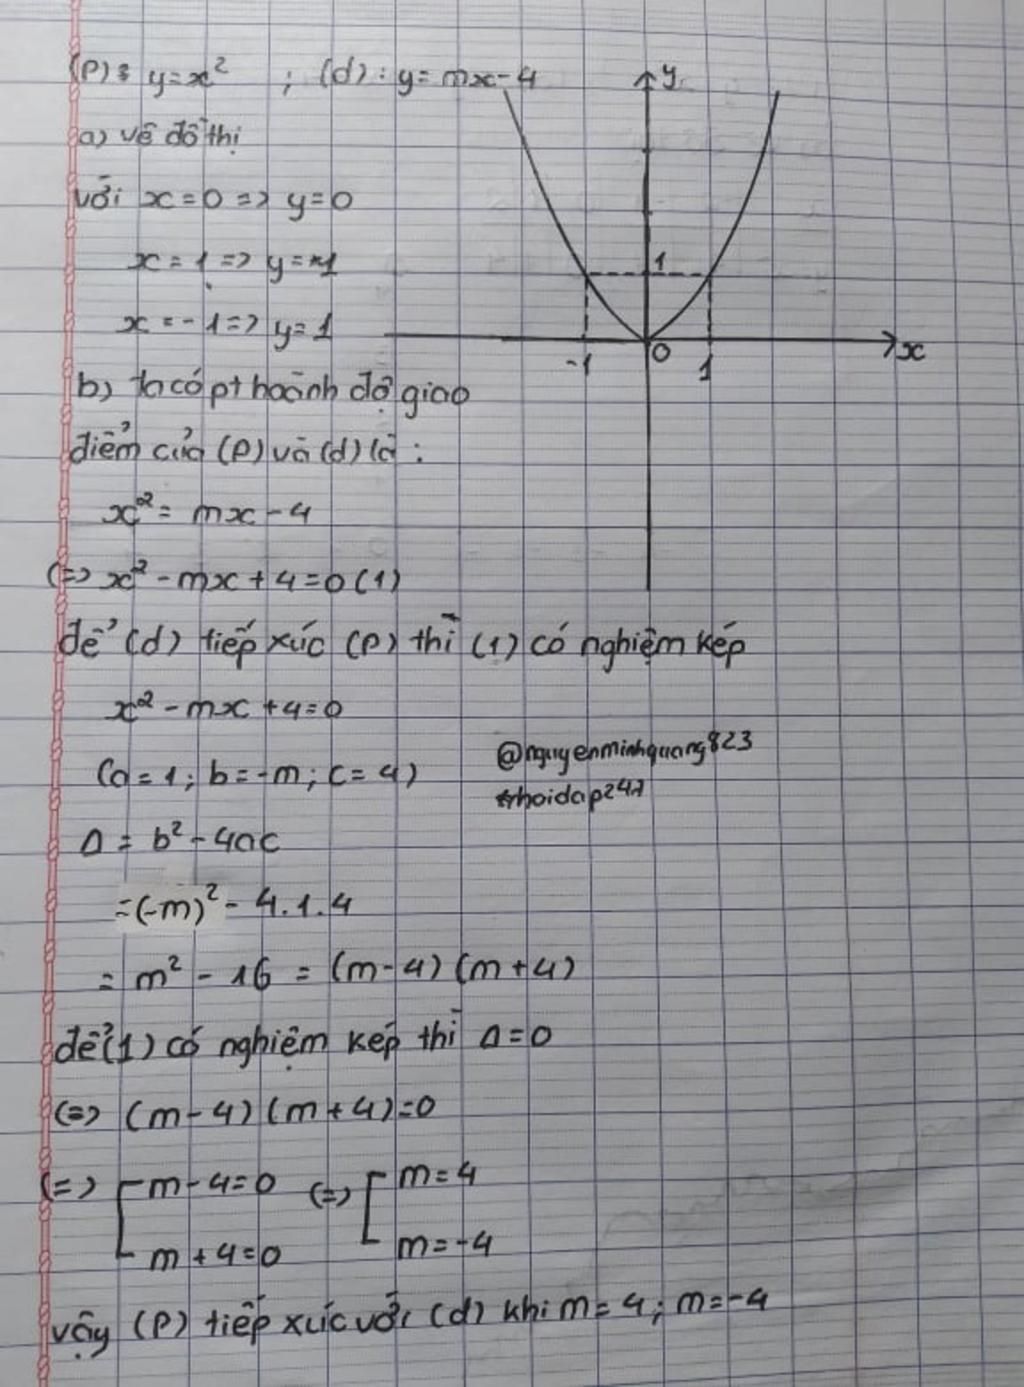 (P): y=x² ; (d): y= mx-4
a) vẽ đồ thị
với x=0 => y=0
x=1 => y=1
x=-1 => y=1
y
1
-1
0
1
x
b) ta có pt hoành độ giao
điểm của (P) và (d) là:
x² = mx-4
(=> x² - mx + 4 = 0 (1)
để (d) tiếp xúc (P) thì (1) có nghiệm kép
x² - mx + 4 = 0
(a=1; b=-m; c=4)
@nguyenminhquang823
#hoidap247
Δ = b² - 4ac
=(-m)² - 4.1.4
= m² - 16 = (m-4)(m+4)
để (1) có nghiệm kép thì Δ=0
(=> (m-4)(m+4)=0
(=> [ m-4=0 (=> [ m=4
m+4=0 m=-4
vậy (P) tiếp xúc với (d) khi m=4; m=-4